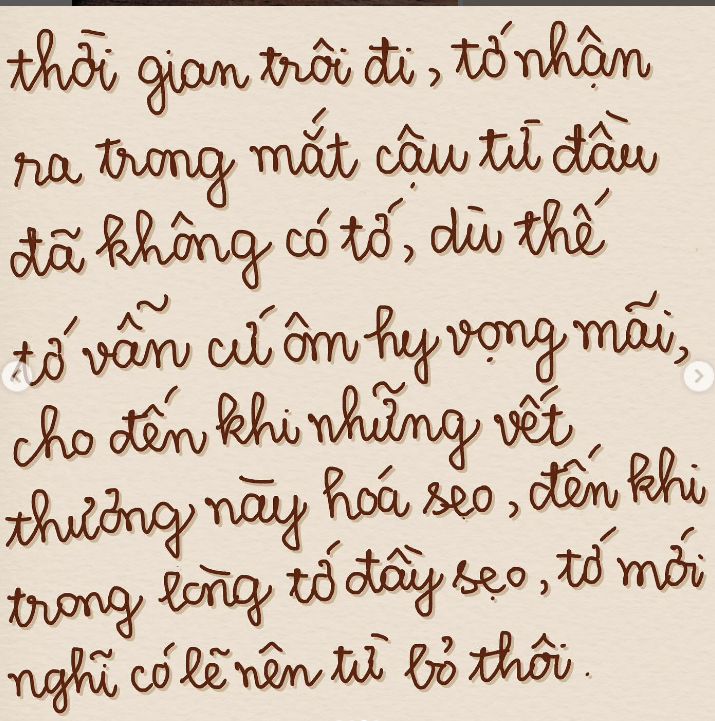 thời gian trôi đi, tớ nhận
ra trong mắt cậu từ đầu
đã không có tớ, dù thế
tớ vẫn cứ ôm hy vọng mãi,
cho đến khi những vết
thương này hoá sẹo, đến khi
trong lòng tớ đầy sẹo, tớ mới
nghĩ có lẽ nên từ bỏ thôi.